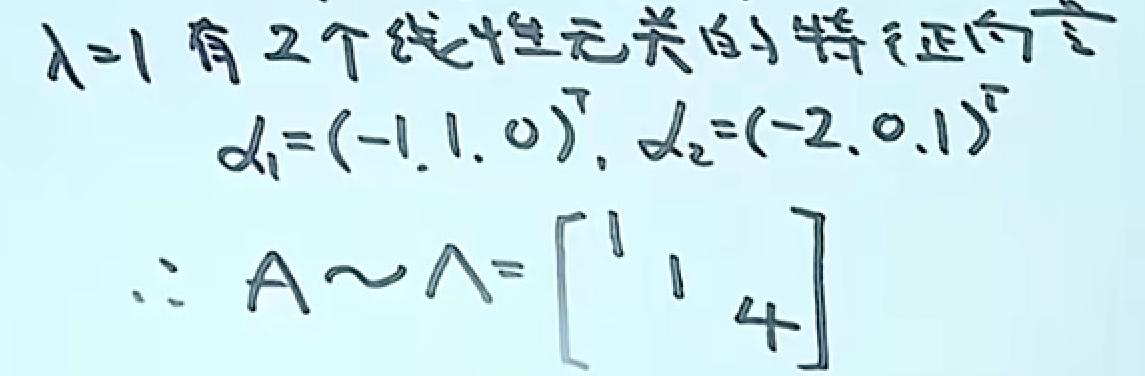 λ=1 有 2个线性无关的特征向量
α₁=(-1.1.0)ᵀ, α₂=(-2.0.1)ᵀ
∴ A～Λ=[1 1 4]